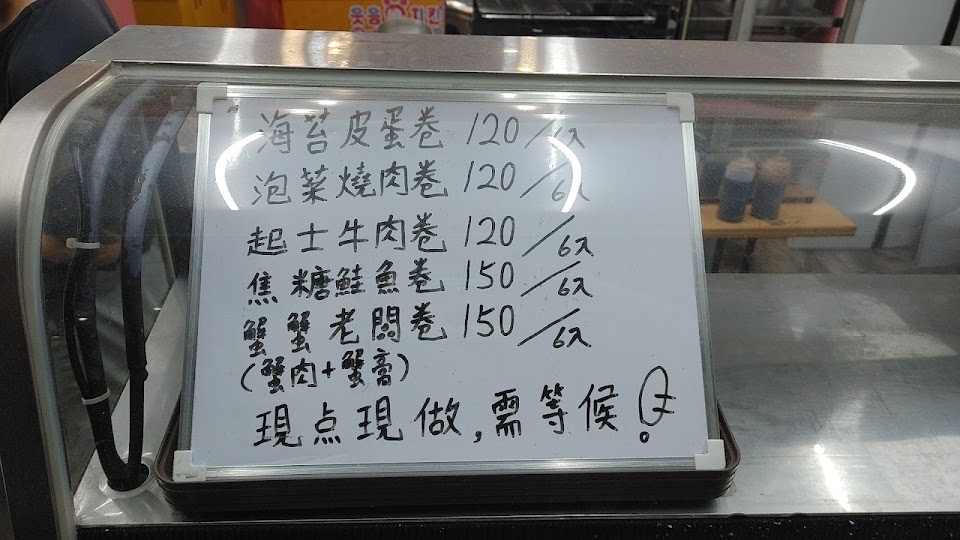 웃음 치킨
海苔皮蛋卷 120/6入
泡菜燒肉卷 120/6入
起士牛肉卷 120/6入
焦糖鮭魚卷 150/6入
蟹蟹老闆卷 150/6入
(蟹肉+蟹膏)
現点現做,需等候!